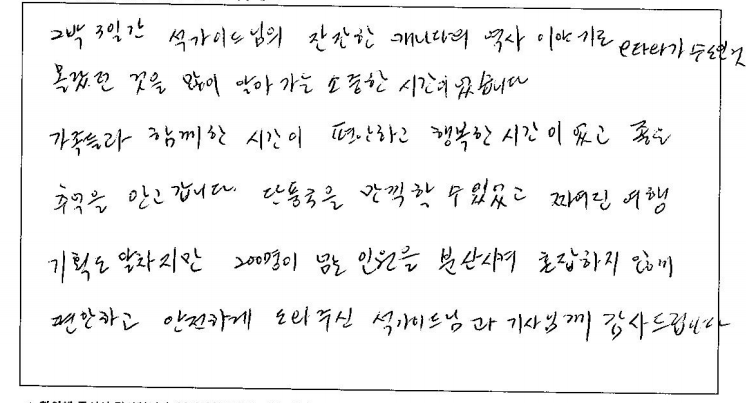 2박 3일간 석가이드님의 잔잔한 캐나다의 역사 이야기로 오타와가 수도인것
몰랐던 것을 많이 알아 가는 소중한 시간이었습니다
가족들과 함께한 시간이 편안하고 행복한 시간이었고 좋은
추억을 안고 갑니다. 단풍국을 만끽할 수 있었고 짜여진 여행
기획도 알차지만 200명이 넘는 인원을 분산시켜 혼잡하지 않게
편안하고 안전하게 도와주신 석가이드님과 기사님께 감사드립니다